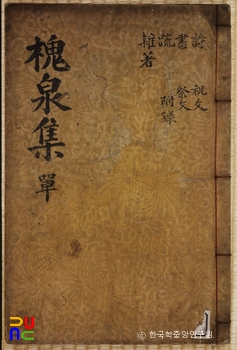 詩書疏雜著
祝文祭文附錄
槐泉集 單
ⓒ 한국학중앙연구원